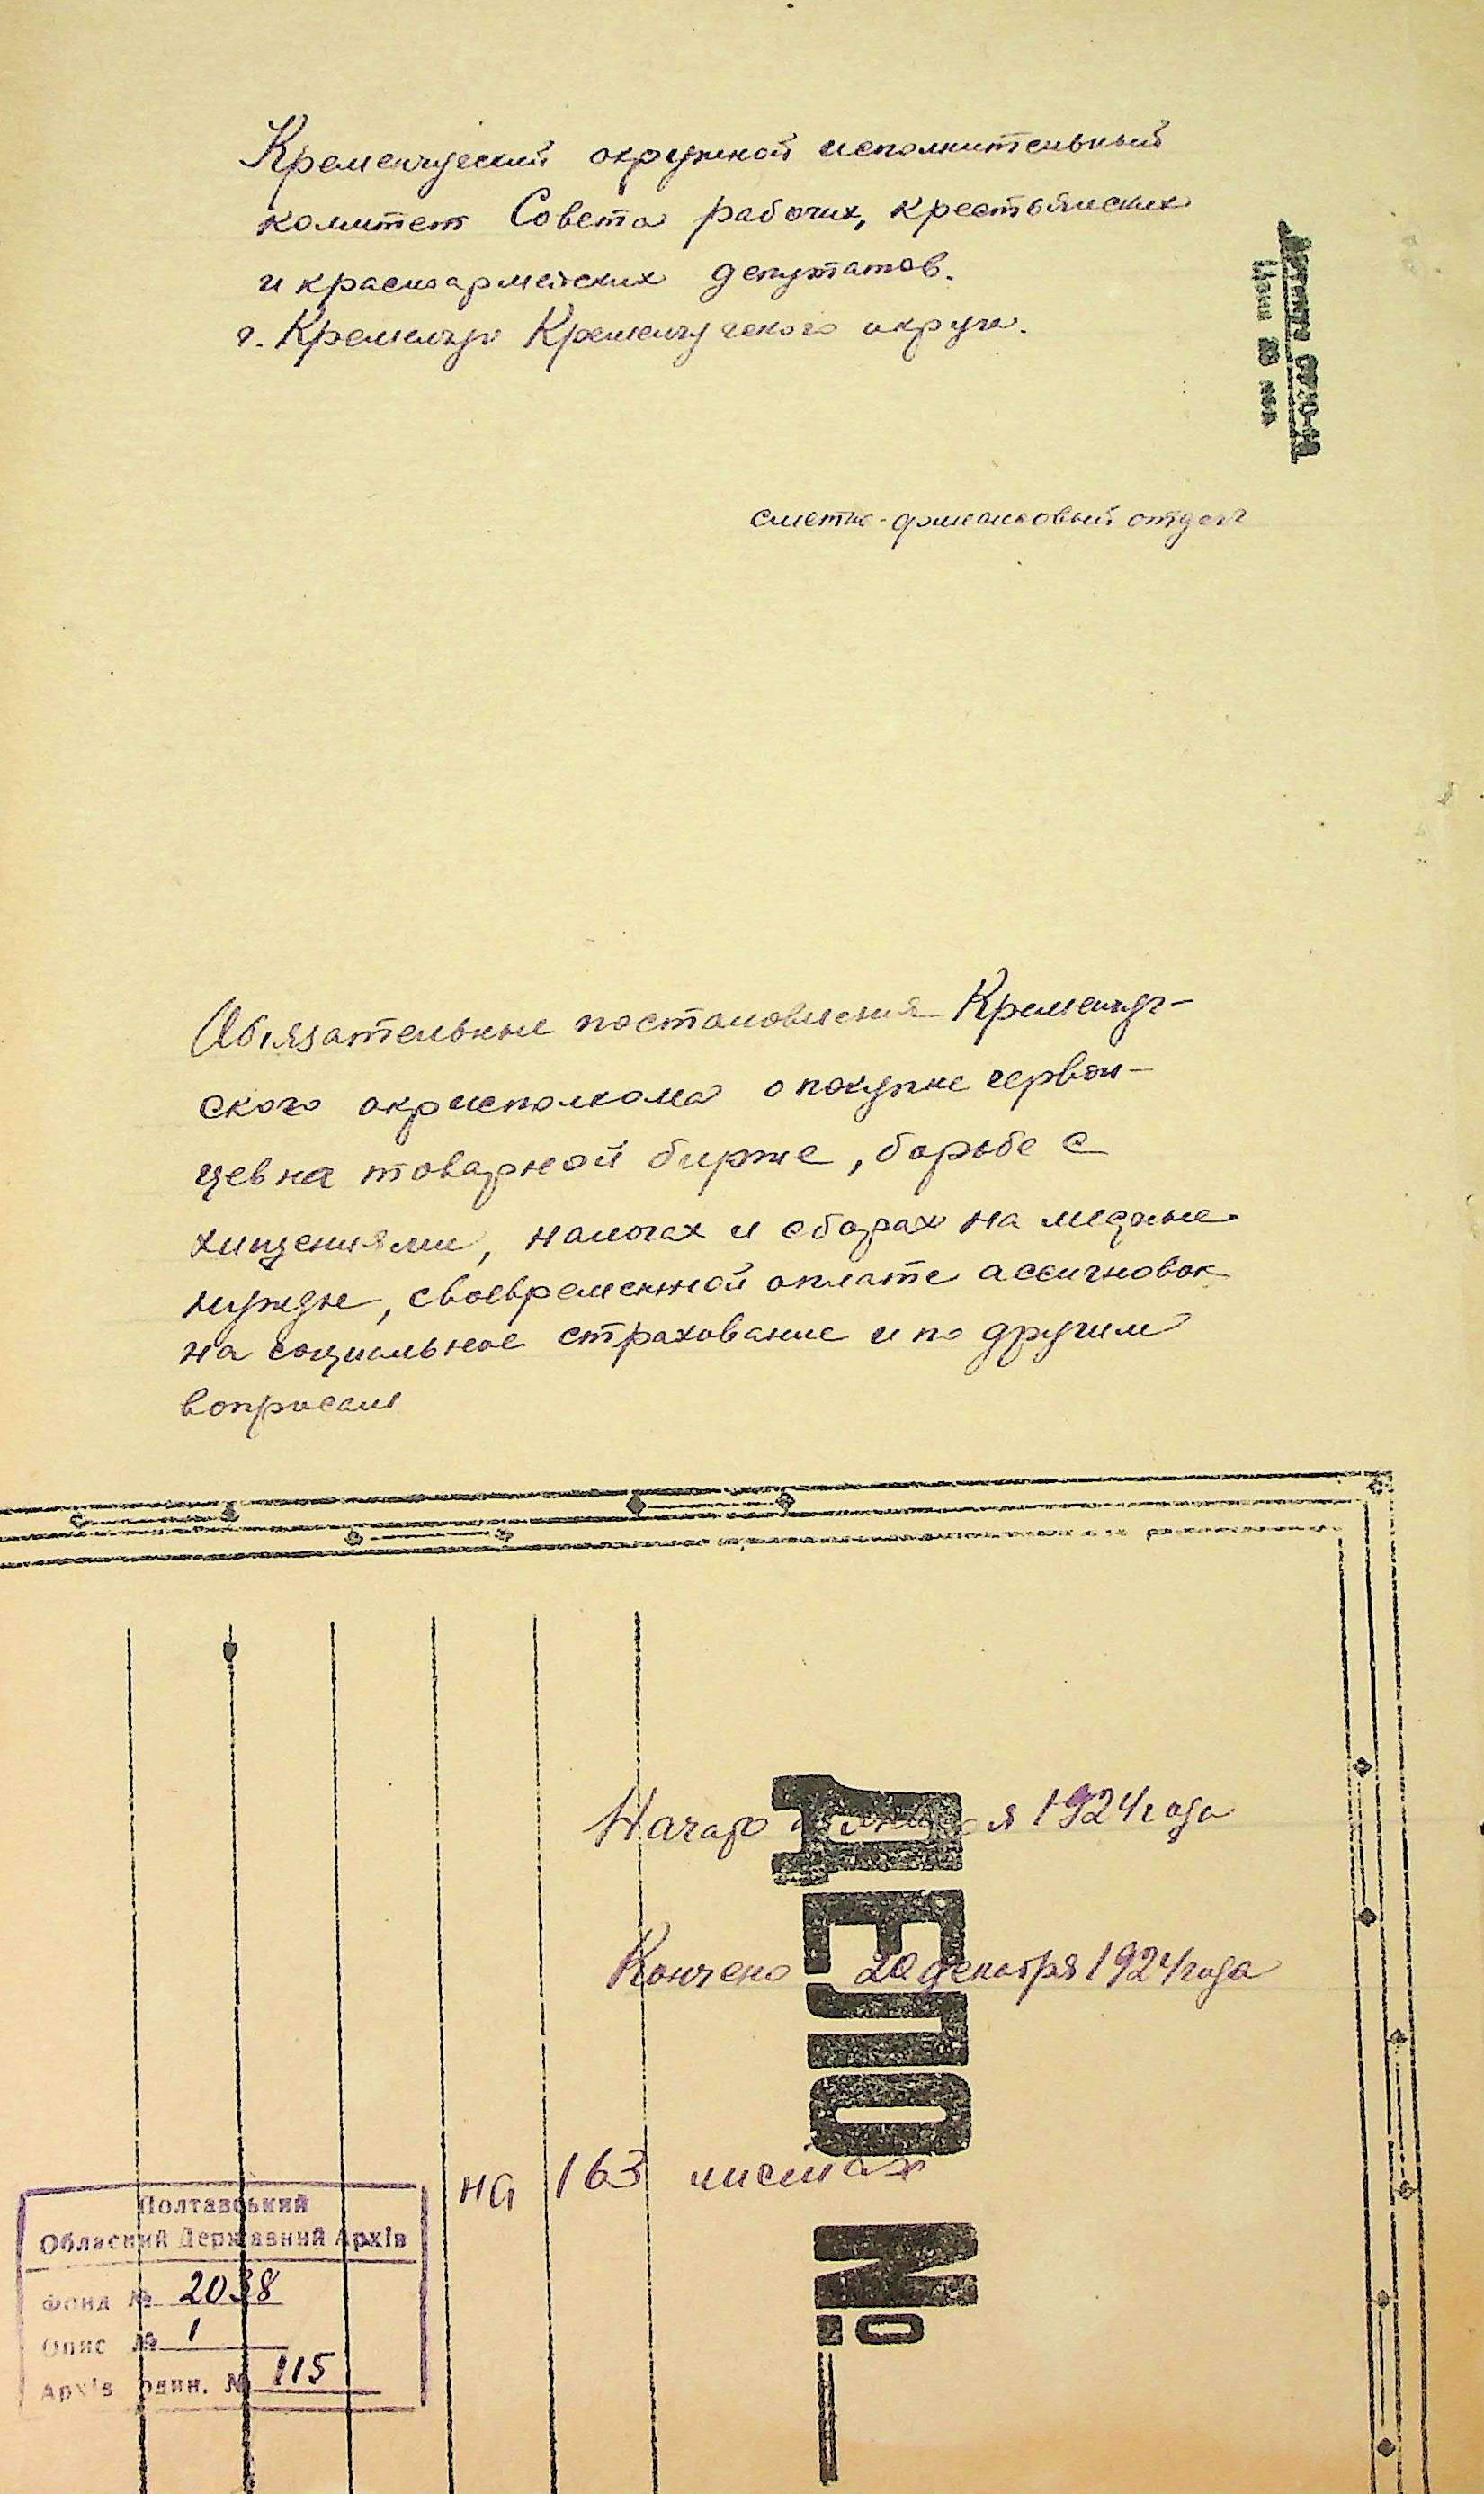 Кременчугский окружной исполнительный
комитет Совета рабочих, крестьянских
и красноармейских депутатов.
г. Кременчуг Кременчугского округа.
сметно-финансовый отдел
Обязательные постановления Кременчуг-
ского окрисполкома о покупке червон-
цев на товарной бирже, борьбе с
хищениями, налогах и сборах на местные
нужды, своевременной оплате ассигновок
на социальное страхование и по другим
вопросам
Начато января 1924 года
Кончено 20 декабря 1924 года
на 163 листах
ДЕЛО №
Полтавський
Обласний Державний Архів
Фонд № 2038
Опис № 1
Архів. один. № 115